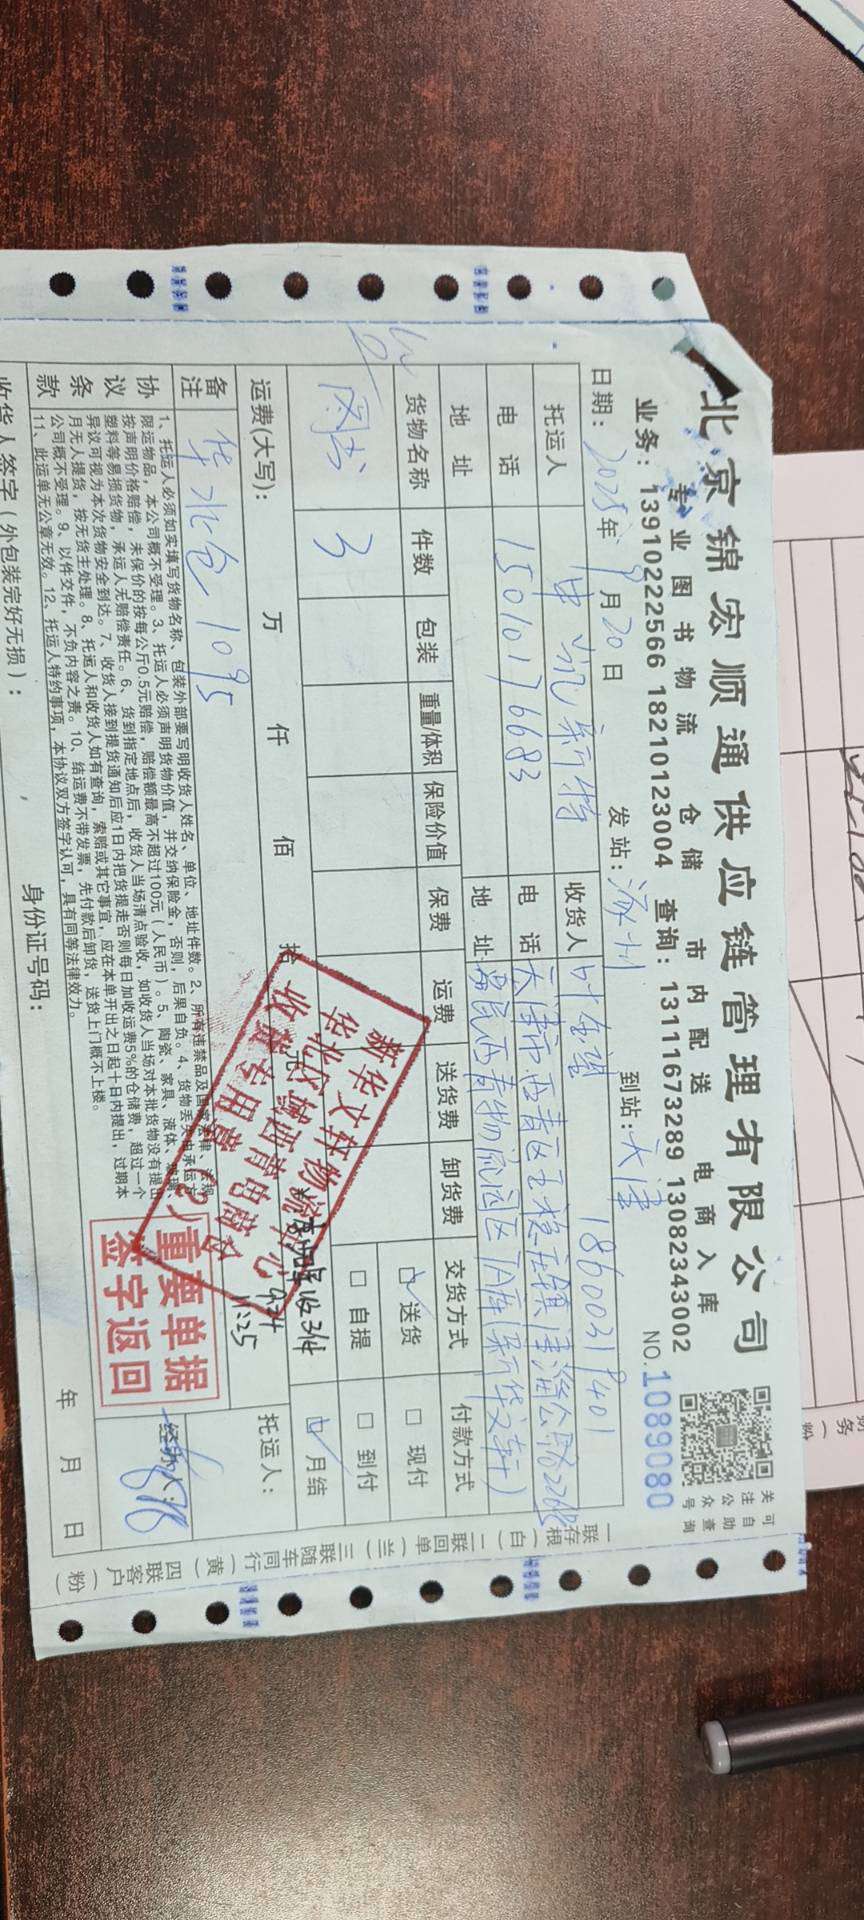 北京锦宏顺通供应链管理有限公司
专业图书物流 仓储 市内配送 电商入库
业务: 13910222566 18210123004 查询: 13111673289 13082343002
关注公众号
可自助查询
日期: 2025年9月20日 发站: 涿州 到站: 天津 NO. 1089080
托运人 申讯新特 收货人 18600319401
电话 15010176683 电话 天津市西青区
地址 地址
货物名称 件数 包装 重量/体积 保险价值 保费 运费 送货费 卸货费 交货方式 付款方式
图书 3 送货 现付
自提 到付
月结
运费(大写): 万 仟 佰 拾 元
实收3件
9.24
11:25
托运人:
备注 华北仓 1095
经办人:
新华文轩物流中心
华北区域西青电商仓
收货专用章(2)
重要单据
签字返回
协议条款
1、托运人必须如实填写货物名称、包装外部要写明收货人姓名、单位、地址件数。2、所有违禁品及国家法律、法规
限运物品,本公司概不受理。3、托运人必须声明货物价值,并交纳保险金,否则,后果自负。4、货物丢失由承运方
按声明价格赔偿,未保价的按每公斤0.5元赔偿,赔偿额最高不超过100元(人民币)。5、陶瓷、家具、液体、玻璃、
塑料等易损货物,承运人无赔偿责任。6、货到指定地点后,收货人当场清点验收,如收货人当场对本批货物没有提出
异议可视为本次货物安全到达。7、收货人接到提货通知后应1日内把货提走否则每日加收运费5%的仓储费,超过一个
月无人提货,按无货主处理。8、托运人和收货人如有查询,索赔或其它事宜,应在本单开出之日起十日内提出,过期本
公司概不受理。9、以件交件,不负内容之责。10、结运费不带发票,先付款后卸货,送货上门概不上楼。
11、此运单无公章无效。12、托运人特约事项,本协议双方签字认可,具有同等法律效力。
收货人签字(外包装完好无损): 身份证号码: 年 月 日
一联存根(白) 二联回单(兰) 三联随车同行(黄) 四联客户(粉)